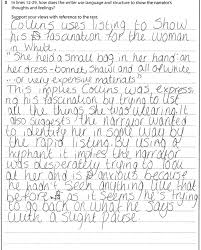 In lines 12-29, how does the writer use language and structure to show the narrator's thoughts and feelings?
Support your views with reference to the text.
Collins uses listing to show
his fascination for the woman
in White.
"She held a small bag in her hand: an
her dress - bonnet, Shawl and all of white
or very expensive matinals"
This implies Collins was express
ing his fascination by trying to list
all the things she was wearing. It
also suggests the Narrator wanted
to identify her in some way by
the rapid listing. By using a
hyphant it implies the narrator
was desperatly trying to look
at her and is anxious because
he hadn't seen anything like that
before as it seems he's trying
to go back on what he says
with a slight pause